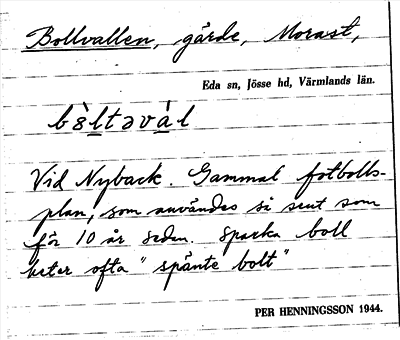 Bollvallen, gärde, Morast,
Eda sn, Jösse hd, Värmlands län.
bòltəvál
Vid Nyback. Gammal fotbolls-
plan, som användes så sent som
för 10 år sedan. Sparka boll
heter ofta "spänte bolt"
PER HENNINGSSON 1944.